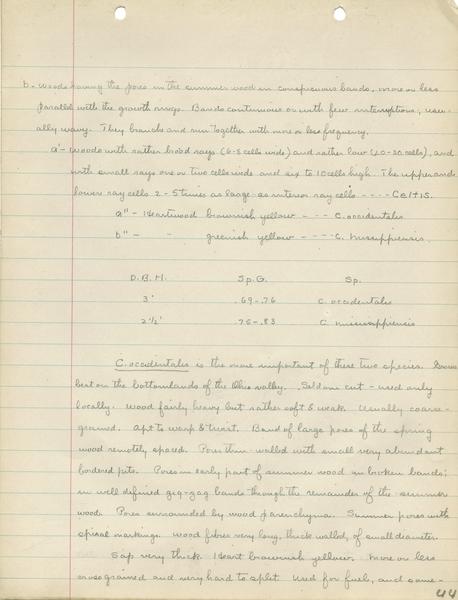 b - Woods having the pores in the summer wood in conspicuous bands, more or less
parallel with the growth rings. Bands continuous or with few interruptions, usu-
ally wavy. They branch and run together with more or less frequency.
a' - Woods with rather broad rays (6-8 cells wide) and rather low (20-30 cells), and
with small rays one or two cells wide and six to 10 cells high. The upper and
lower ray cells 2-5 times as large as interior ray cells - - - - Celtis.
a" - Heartwood brownish yellow - - - C. occidentales
b" - - greenish yellow - - - - C. missippiensis.
D. B. H. Sp. G. Sp.
3' .69-.76 C. occidentales
2 1/2' .75-.83 C. mississippiensis
C. occidentales is the more important of these two species. Grows
best on the bottomlands of the Ohio valley. Seldom cut - used only
locally. Wood fairly heavy but rather soft & weak. Usually coarse-
grained. Apt to warp & twist. Band of large pores of the spring
wood remotely spaced. Pores thin walled with small very abundant
bordered pits. Pores in early part of summer wood in broken bands;
in well defined zig-zag bands through the remainder of the summer
wood. Pores surrounded by wood parenchyma. Summer pores with
spiral markings. Wood fibres very long, thick walled, of small diameter.
Sap very thick. Heart brownish yellow. More or less
cross grained and very hard to split. Used for fuel, and some-
44